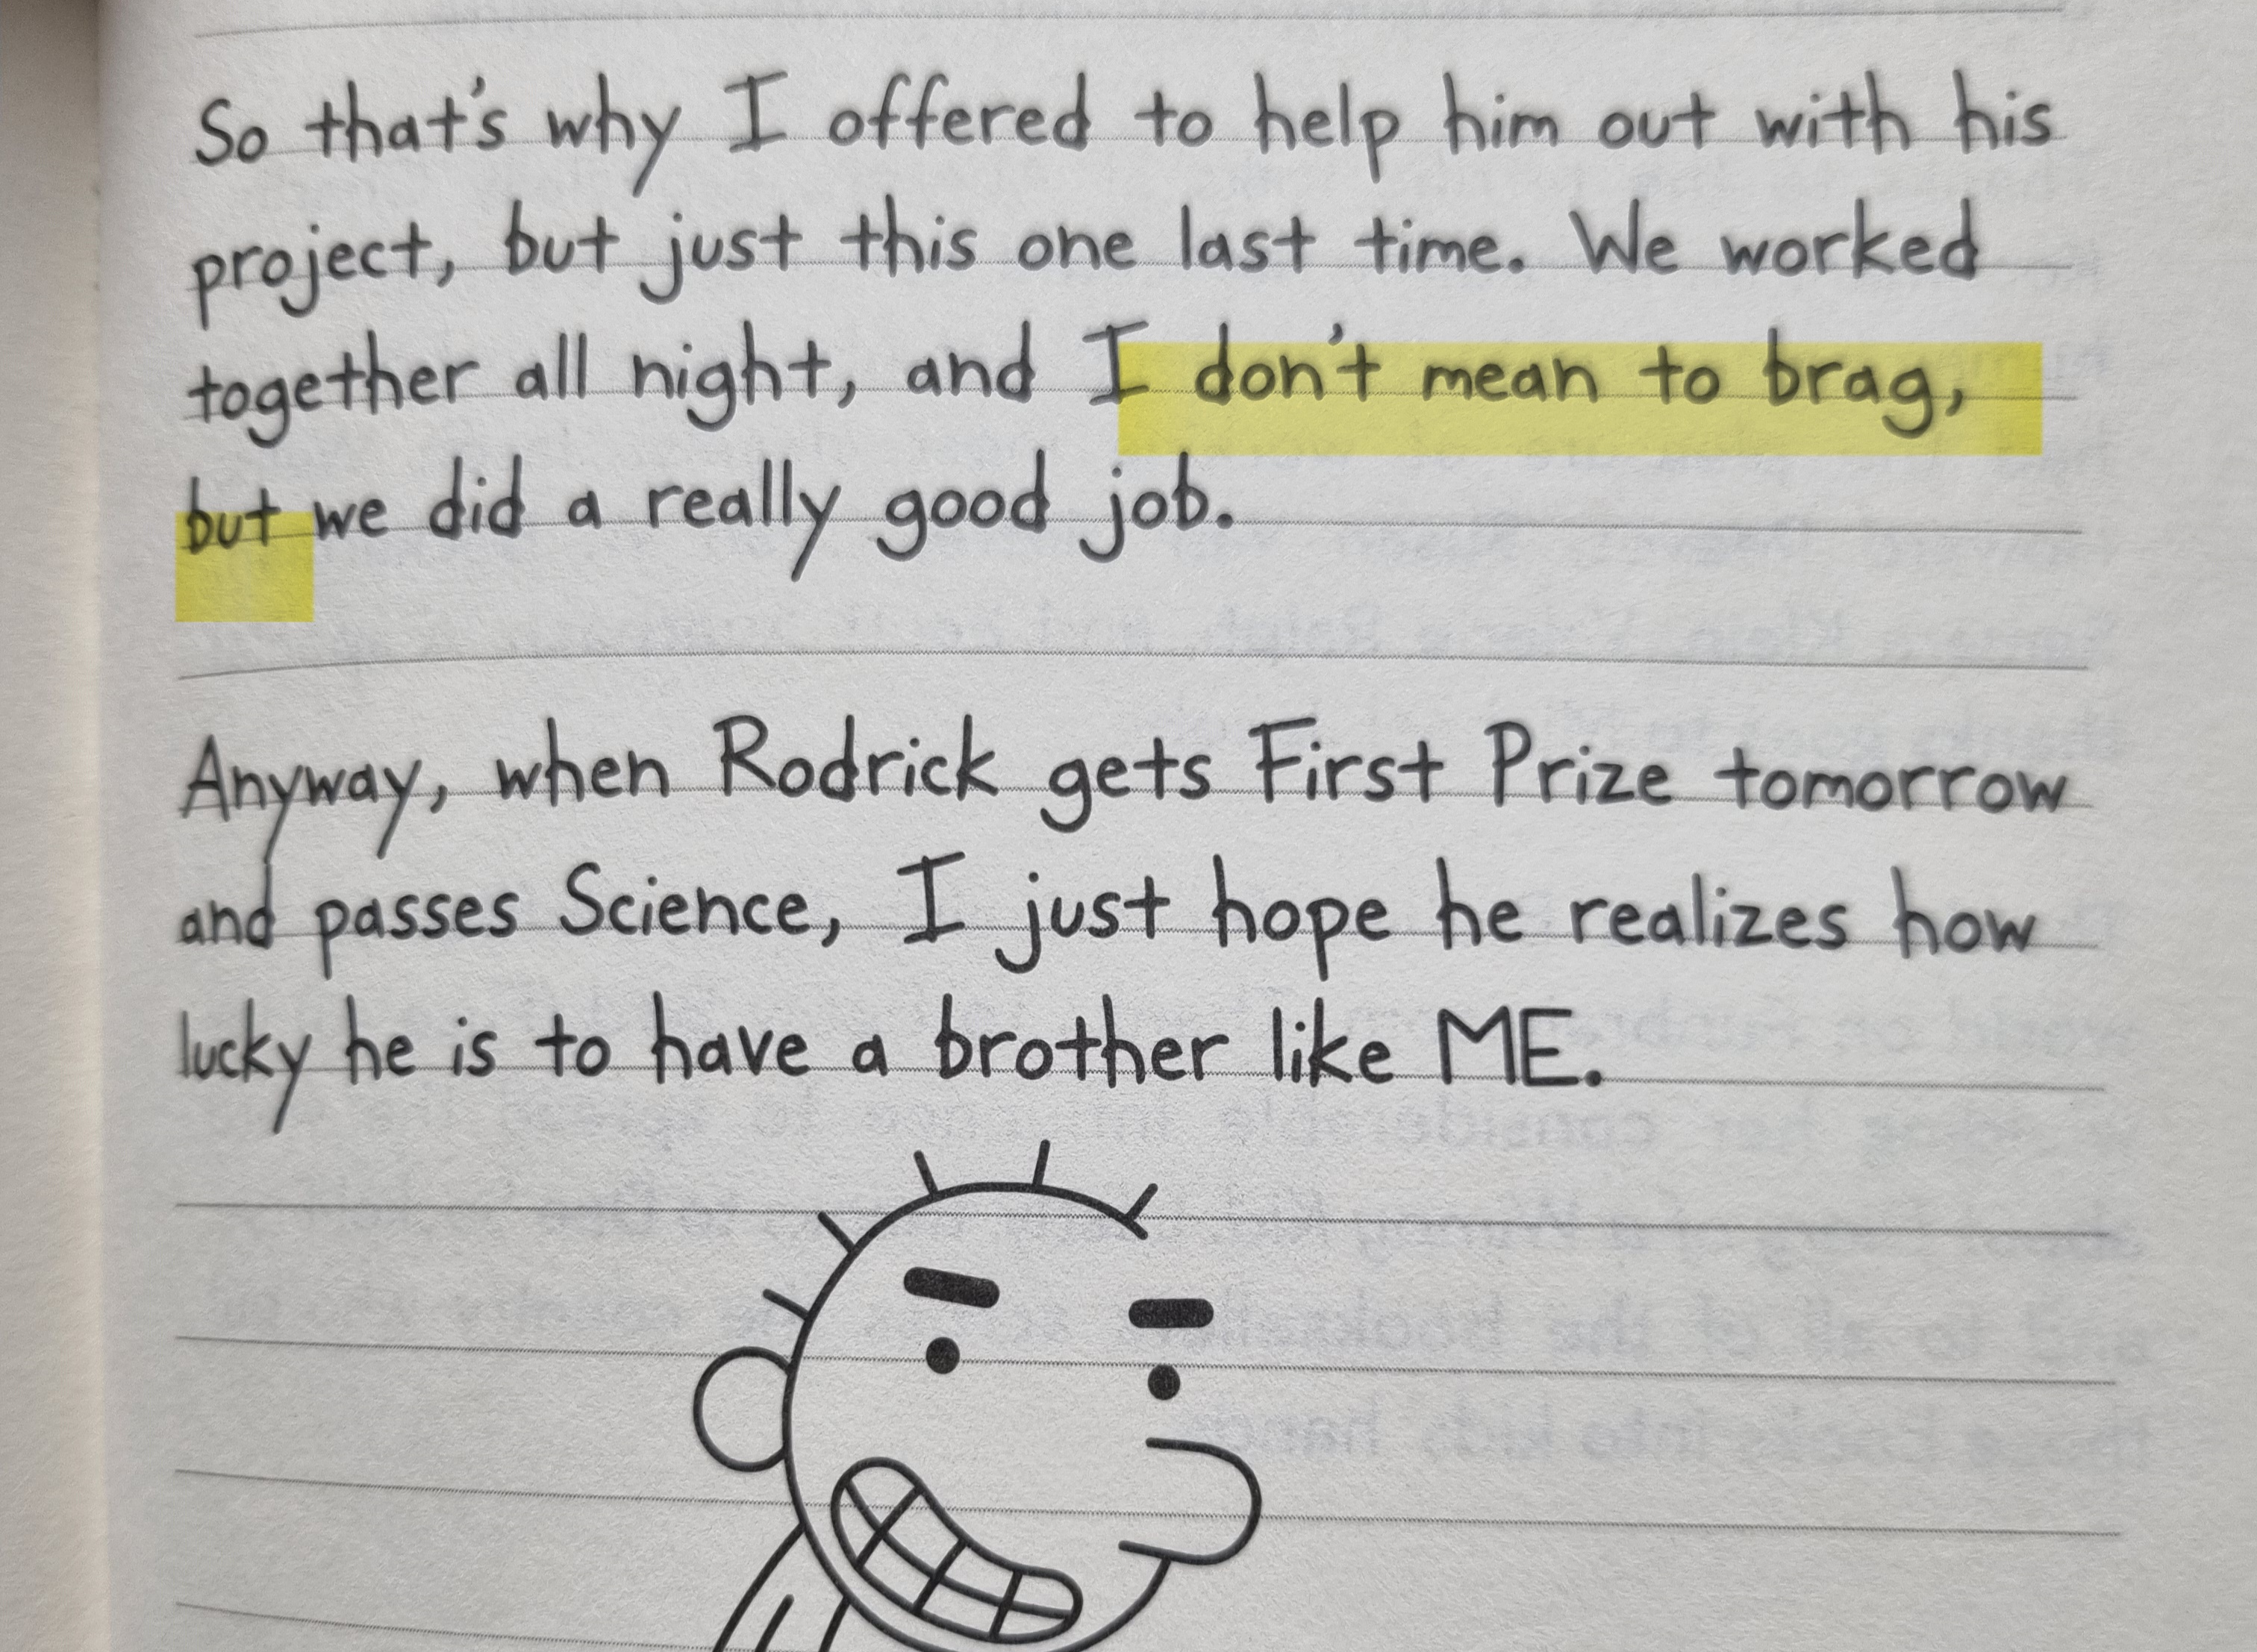 So that's why I offered to help him out with his
project, but just this one last time. We worked
together all night, and I don't mean to brag,
but we did a really good job.
Anyway, when Rodrick gets First Prize tomorrow
and passes Science, I just hope he realizes how
lucky he is to have a brother like ME.